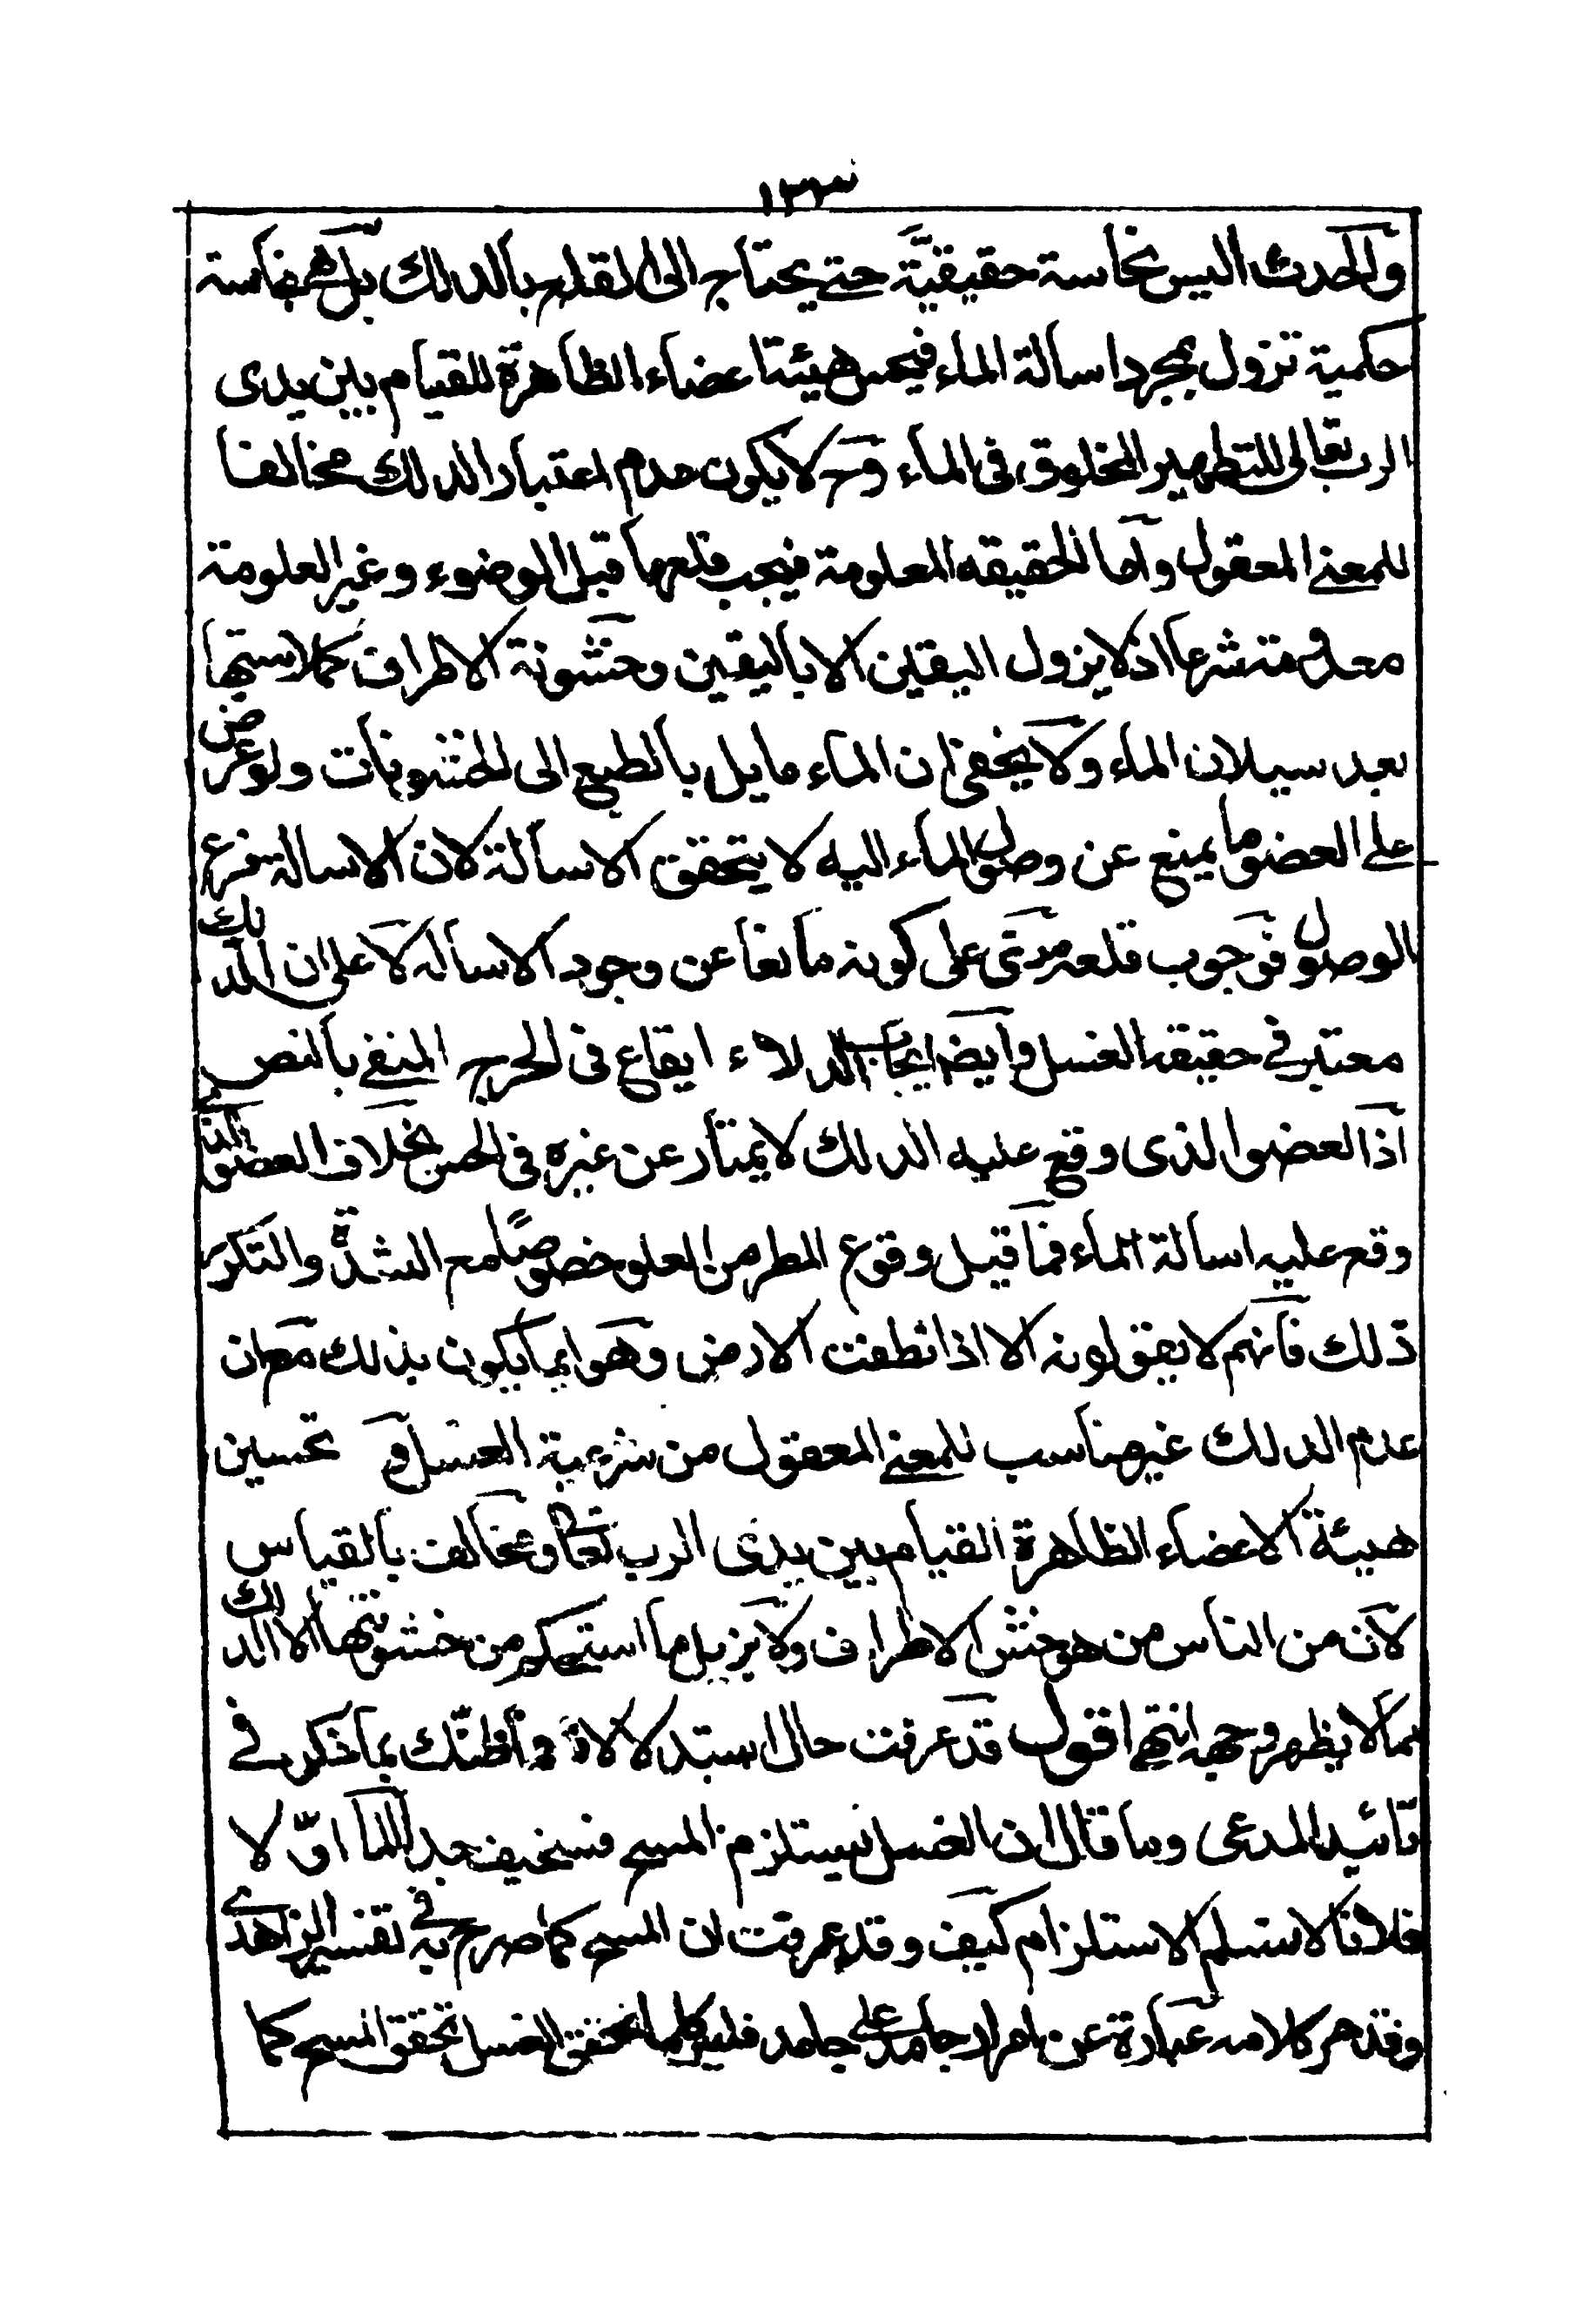 ١٣٣
والحدث اليس نجاسة حقيقيّة حتے يحتاج الى القلع بالدلك بل هے نجاسة
حكمية تزول بمجرد اسالة الماء فيحسن هيئة اعضاء الظاهرة للقيام بين يدى
الرب تعالى للتطهير المخلوق فى الماء وح لا يكون عدم اعتبار الدلك مخالفا
للمعنے المعقول واما الحقيقه المعلومة فيجب قلعها قبل الوضوء وغير العلومة
معدومة شرعا اذ لا يزول اليقين الا باليقين وخشونة الاطراف كملاستها
بعد سيلان الماء ولا يخفى ان الماء مايل بالطبع الى الخشونات ولو عرض
على العضو ما يمنع عن وصول الماء اليه لا يتحقق الاسالة لان الاسالة فرع
الوصول فوجوب قلعه مبنى على كونه مانعا عن وجود الاساله لا على ان الدلك
معتبر فے حقيقة الغسل وايضا ايجاب الدلاء ايقاع فى الحرج المنفے بالنص
اذ العضو الذى وقع عليه الدلك لا يمتاز عن غيره فى الحس بخلاف العضو الذے
وقع عليه اسالة الماء فما قيل وقوع المطر من العلو خصوصًا مع الشدّة والتكرر
ذلك فانهم لا يقولونه الا اذا نظفت الارض وهو انما يكون بذلك مع ان
عدم الدلك غير مناسب للمعنے المعقول من شرعية الغسل و تحسين
هيئة الاعضاء الظاهرة القيام بين يدى الرب تعالى ومخالف بالقياس
لان من الناس من هو خشن الاطراف ولا يزيل ما استحكم من خشونتها الا الدلك
مما لا يظهر وجهه انتهے اقول قد عرفت حال استدلالاته واظنّك بما ذكر فے
تائيد المدعى وما قال ان الغسل يستلزم المسح فسخيف جدا اما اوّلا
فلانا لا نسلم الاستلزام كيف وقد عرفت ان المسح كما صرح به فى تفسير الزاهدے
وقد مر كلامه عبارة عن امرار جامد على جامد فليس كلما تحقق الغسل تحقق المسح كما